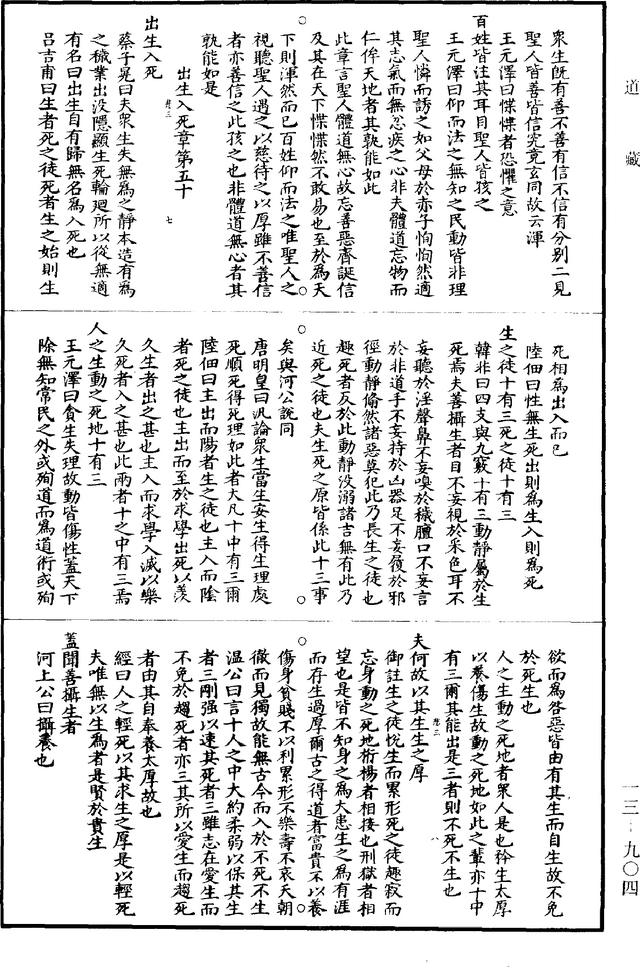 道藏
眾生既有善不善有信不信有分別二見
聖人皆善皆信究竟玄同故云渾
王元澤曰惵惵者恐懼之意
百姓皆注其耳目聖人皆孩之
王元澤曰仰而法之無知之民動皆非理
聖人憐而誘之如父母於赤子恂恂然適
其志氣而無忿疾之心非夫體道忘物而
仁侔天地者其孰能如此
此章言聖人體道無心故忘善惡齊誕信
及其在天下惵惵然不敢易也至於為天
下則渾然而已百姓仰而法之唯聖人之
視聽聖人遇之以慈待之以厚雖不善信
者亦善信之此孩之也非體道無心者其
孰能如是
出生入死章第五十
卷三 七
出生入死
蔡子晃曰夫眾生失無為之靜本造有為
之穢業出沒隱顯生死輪迴所以從無適
有名曰出生自有歸無名為入死也
呂吉甫曰生者死之徒死者生之始則生
死相為出入而已
陸佃曰性無生死出則為生入則為死
生之徒十有三死之徒十有三
韓非曰四支與九竅十有三動靜屬於生
死焉夫善攝生者目不妄視於采色耳不
妄聽於淫聲鼻不妄嗅於穢膻口不妄言
於非道手不妄持於凶器足不妄履於邪
徑動靜翛然諸惡莫犯此乃長生之徒也
趣死者反於此動靜沒溺諸吉無有此乃
近死之徒也夫生死之原皆係此十三事
矣與河公說同
唐明皇曰汎論眾生當生安生得生理處
死順死得死理如此者大凡十中有三爾
陸佃曰主出而陽者生之徒也主入而陰
者死之徒也主出而至於求學出死以羨
久生者出之甚也主入而求學入滅以樂
久死者入之甚也此兩者十之中有三焉
人之生動之死地十有三
王元澤曰貪生失理故動皆傷性蓋天下
除無知常民之外或殉道而為道術或殉
欲而為咎惡皆由有其生而自生故不免
於死生也
人之生動之死地者眾人是也矜生太厚
以養傷生故動之死地如此之輩亦十中
有三爾其能出是三者則不死不生也
卷三 八
夫何故以其生生之厚
御註生之徒悅生而累形死之徒趣寂而
忘身動之死地桁楊者相接也刑獄者相
望也是皆不知身之為大患生之為有涯
而存生過厚爾古之得道者富貴不以養
傷身貧賤不以利累形不樂壽不哀夭朝
徹而見獨故能無古今而入於不死不生
溫公曰言十人之中大約柔弱以保其生
者三剛強以速其死者三雖志在愛生而
不免於趨死者亦三其所以愛生而趨死
者由其自奉養太厚故也
經曰人之輕死以其求生之厚是以輕死
夫唯無以生為者是賢於貴生
蓋聞善攝生者
河上公曰攝養也
一三－九〇四